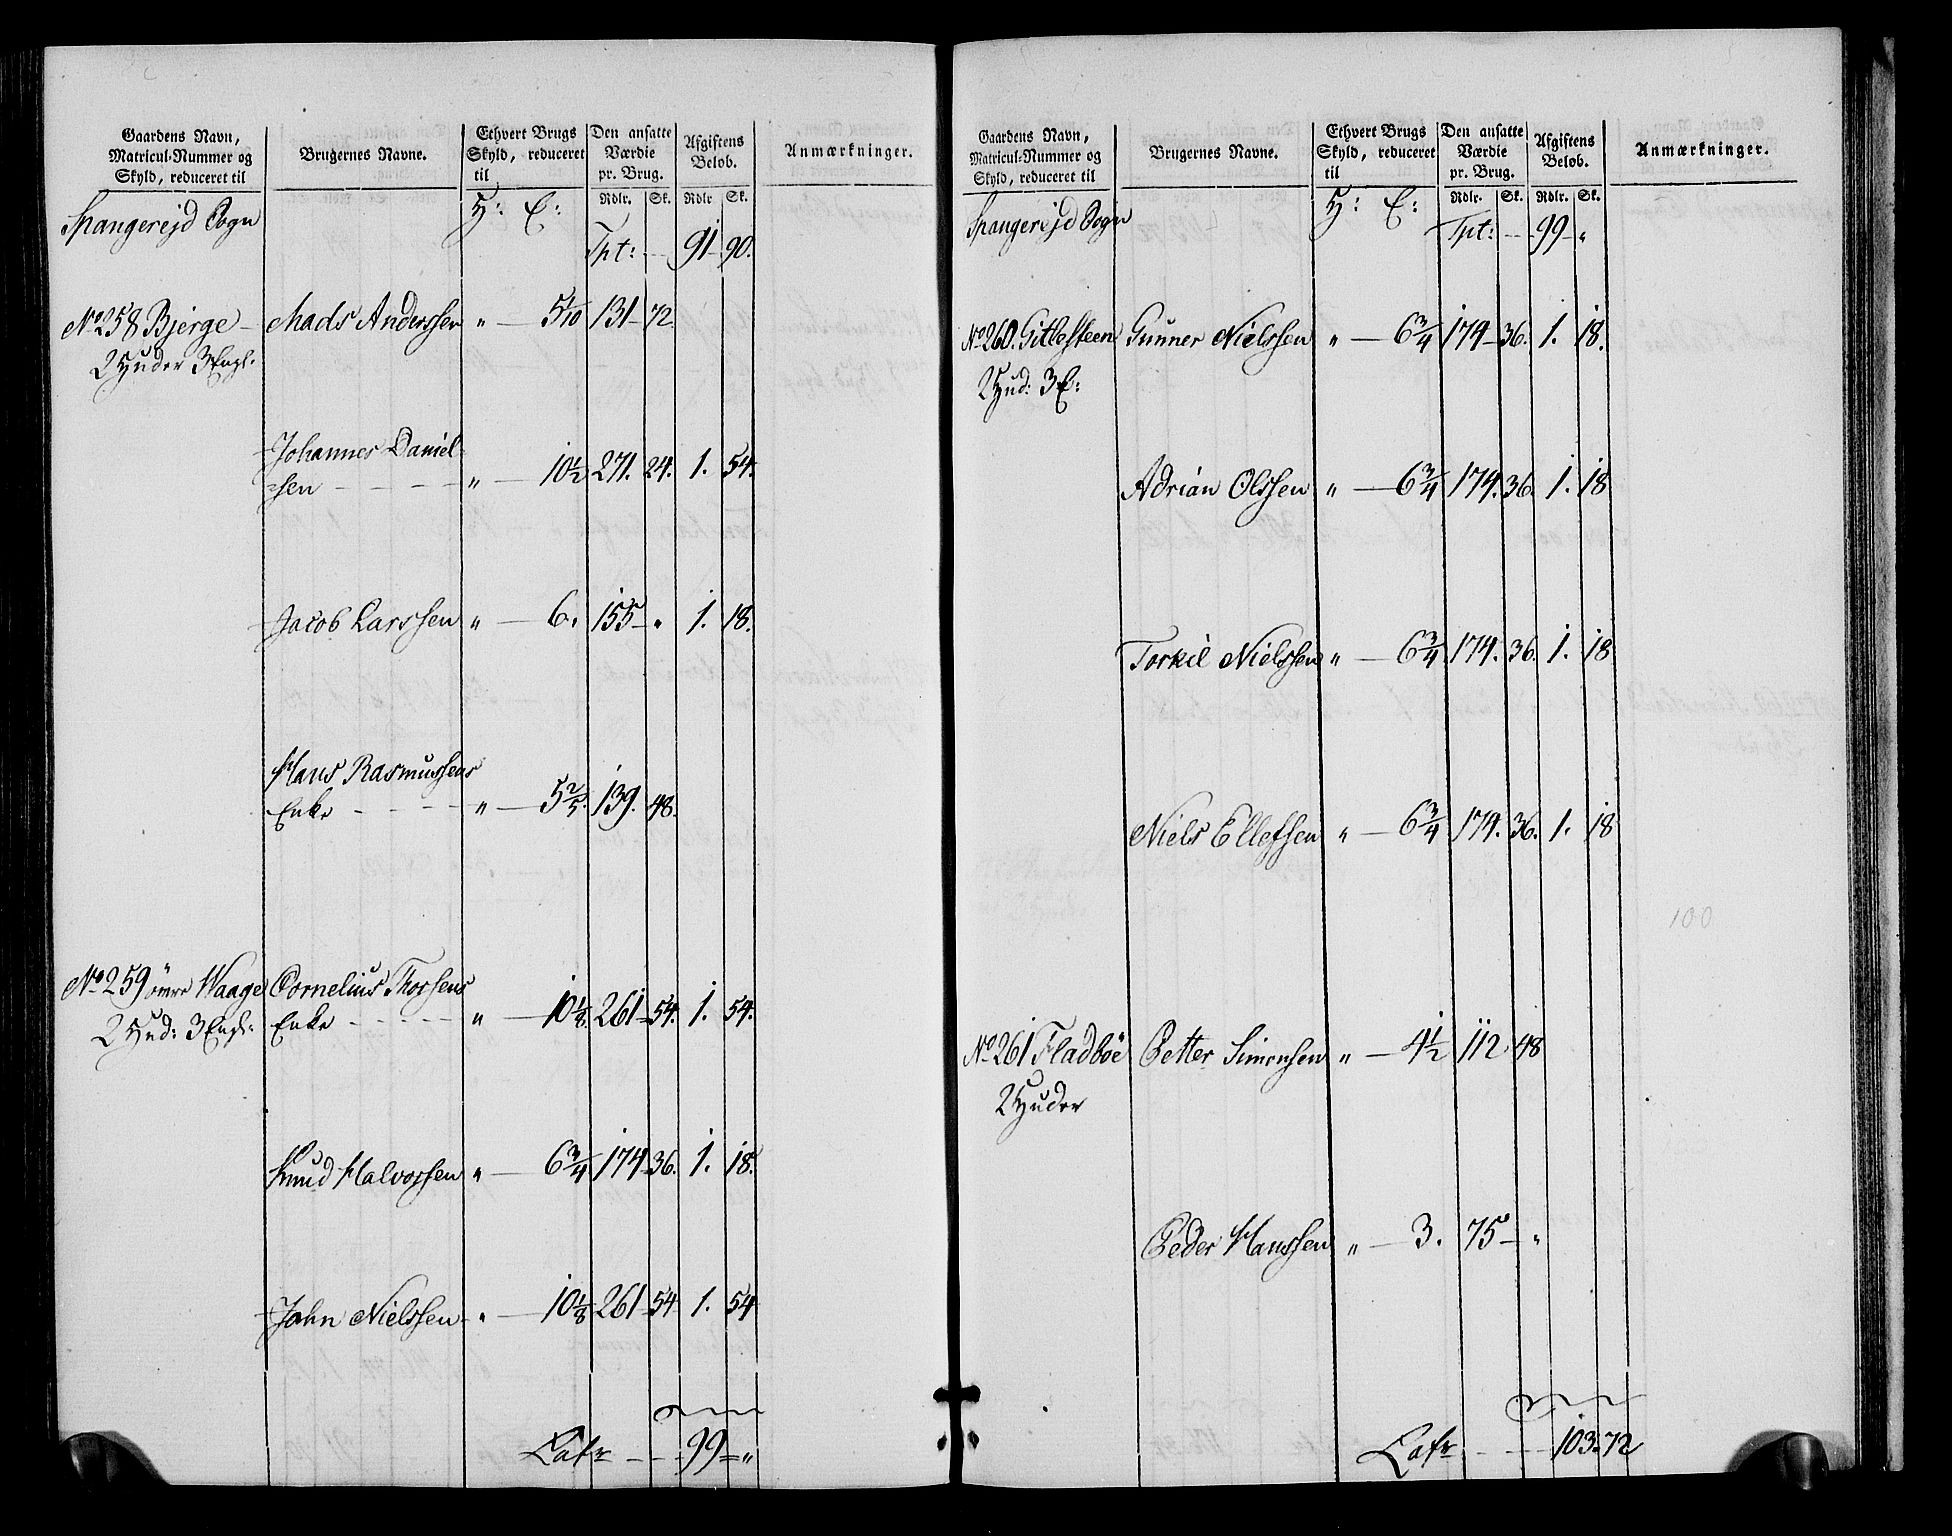 Gaardens Navn,
Matricul-Nummer og
Skyld, reduceret til
Brugernes Navne.
Ethvert Brugs
Skyld, reduceret
til
Den ansatte
Værdie
pr. Brug.
Afgiftens
Beløb.
Anmærkninger.
Rdlr. Sk. Rdlr Sk.
Spangerejd Sogn H: E:
Tpt: 91 - 90.
No 258 Bjerge - Mads Anderssen " - 5 1/10 131 - 72.
2 Huder 3 Engl:
Johannes Daniel-
sen - - - - " - 10 1/2 271. 24. 1. 54.
Jacob Larssen " - 6. 155 - " 1. 18.
Hans Rasmussens
Enke - - - - " - 5 2/5. 139. 48.
No 259 Waage Cornelius Thorsens
2 Hud: 3 Engl: Enke - - - - " - 10 1/8. 261 - 54. 1. 54.
Knud Halvorssen " - 6 3/4 174 - 36. 1. 18.
John Nielssen - " - 10 1/8 261 - 54 1. 54
Latr - - - 99 = "
Gaardens Navn,
Matricul-Nummer og
Skyld, reduceret til
Brugernes Navne.
Ethvert Brugs
Skyld, reduceret
til
Den ansatte
Værdie
pr. Brug.
Afgiftens
Beløb.
Anmærkninger.
Rdlr. Sk. Rdlr. Sk.
Spangerejd Sogn H: E:
Tpt: - - 99 - "
No 260. Gitlesteen Gunner Nielssen " - 6 3/4 174 - 36. 1. 18.
2 Hud: 3 E:
Adrian Olssen " - 6 3/4 174. 36. 1. 18
Torkil Nielssen " - 6 3/4 174. 36. 1. 18
Niels Ellefsen " - 6 3/4 174. 36. 1. 18
100
No 261 Fladbøe Petter Simensen " - 4 1/2 112 48
2 Huder
Peder Hanssen " - 3. 75 - "
Latr - - - 103 - 72